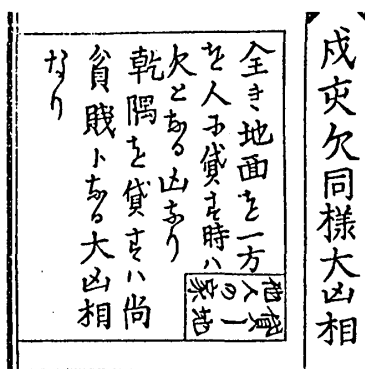 戍亥欠同様大凶相
全き地面を一方
を人に貸す時ハ
欠となる凶なり
乾隅を貸すハ尚
貧賤トなる大凶相
なり
貸地
人の家